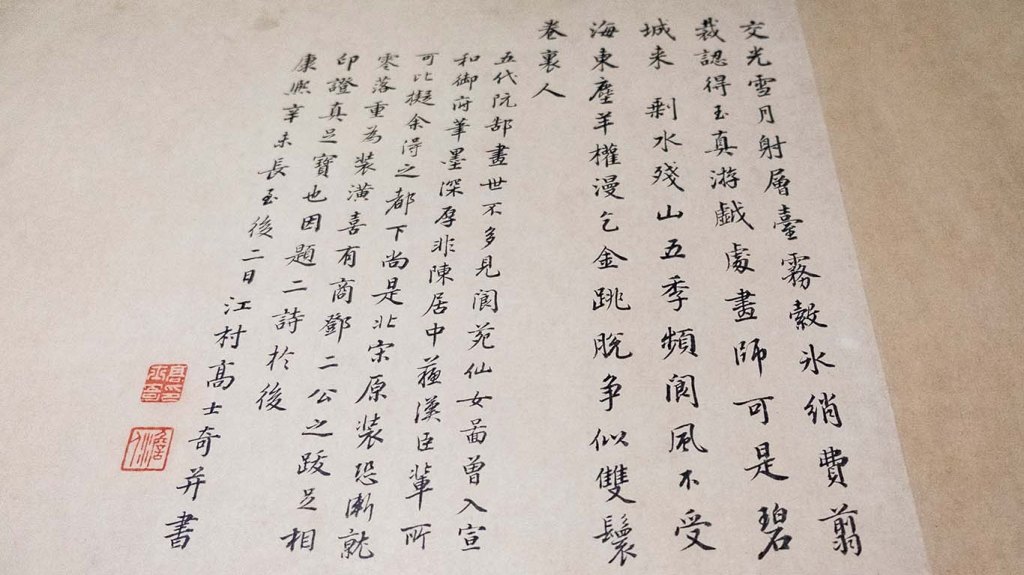 交光雪月射層臺霧縠氷綃費翦
裁認得玉真游戯處畫師可是碧
城来 剰水殘山五季頻閬風不受
海東塵羊權漫乞金跳脫争似雙鬟
卷裏人
五代阮郜畫世不多見閬苑仙女啚曾入宣
和御府筆墨深厚非陳居中蘓漢臣輩所
可比擬余得之都下尚是北宋原装恐漸就
零落重為装潢喜有商鄧二公之跋足相
印證真足寶也因題二詩於後
康熙辛未長至後二日江村髙士奇并書